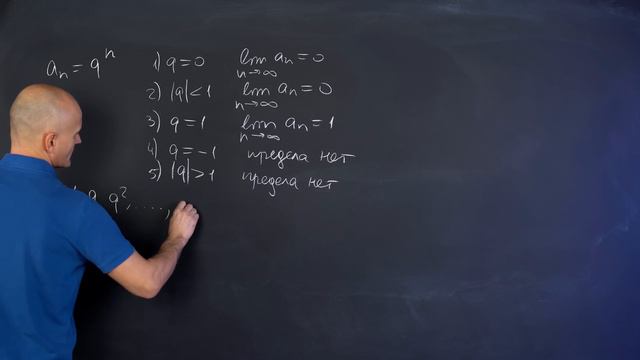 aₙ = qⁿ 1) q = 0 lim aₙ = 0
n→∞
2) |q| < 1 lim aₙ = 0
n→∞
3) q = 1 lim aₙ = 1
n→∞
4) q = -1 предела нет
5) |q| > 1 предела нет
q q², ....,